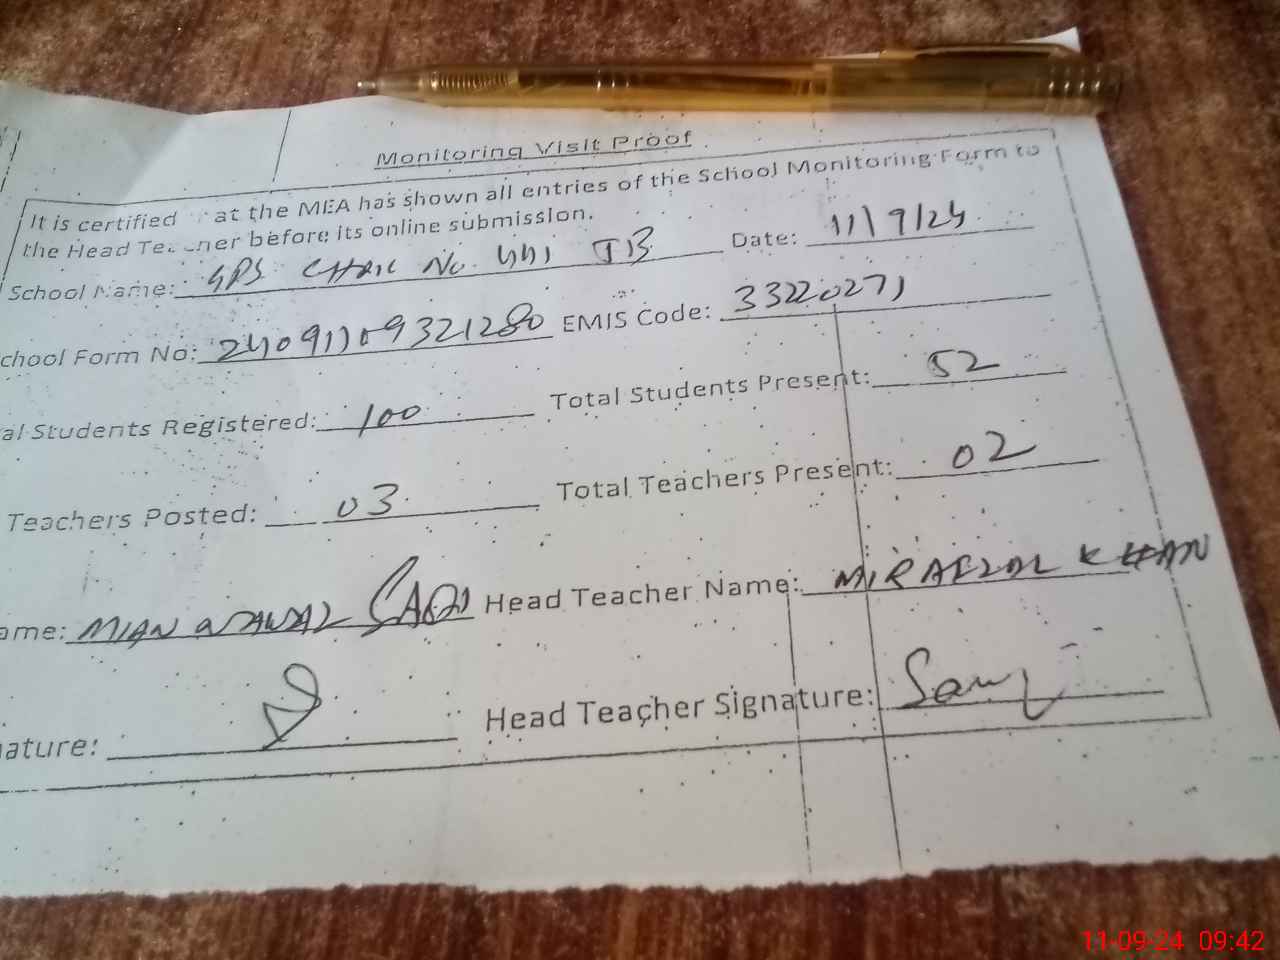 Monitoring Visit Proof
It is certified at the MEA has shown all entries of the School Monitoring Form to
the Head Teacher before its online submission.
School Name: GPS CHAK No. 441 JB Date: 11/9/24
chool Form No: 24091109321280 EMIS Code: 33220271
al Students Registered: 100 Total Students Present: 52
Teachers Posted: 03 Total Teachers Present: 02
ame: MIAN Head Teacher Name: MIR AFZAL KHAN
ature: Head Teacher Signature:
11-09-24 09:42